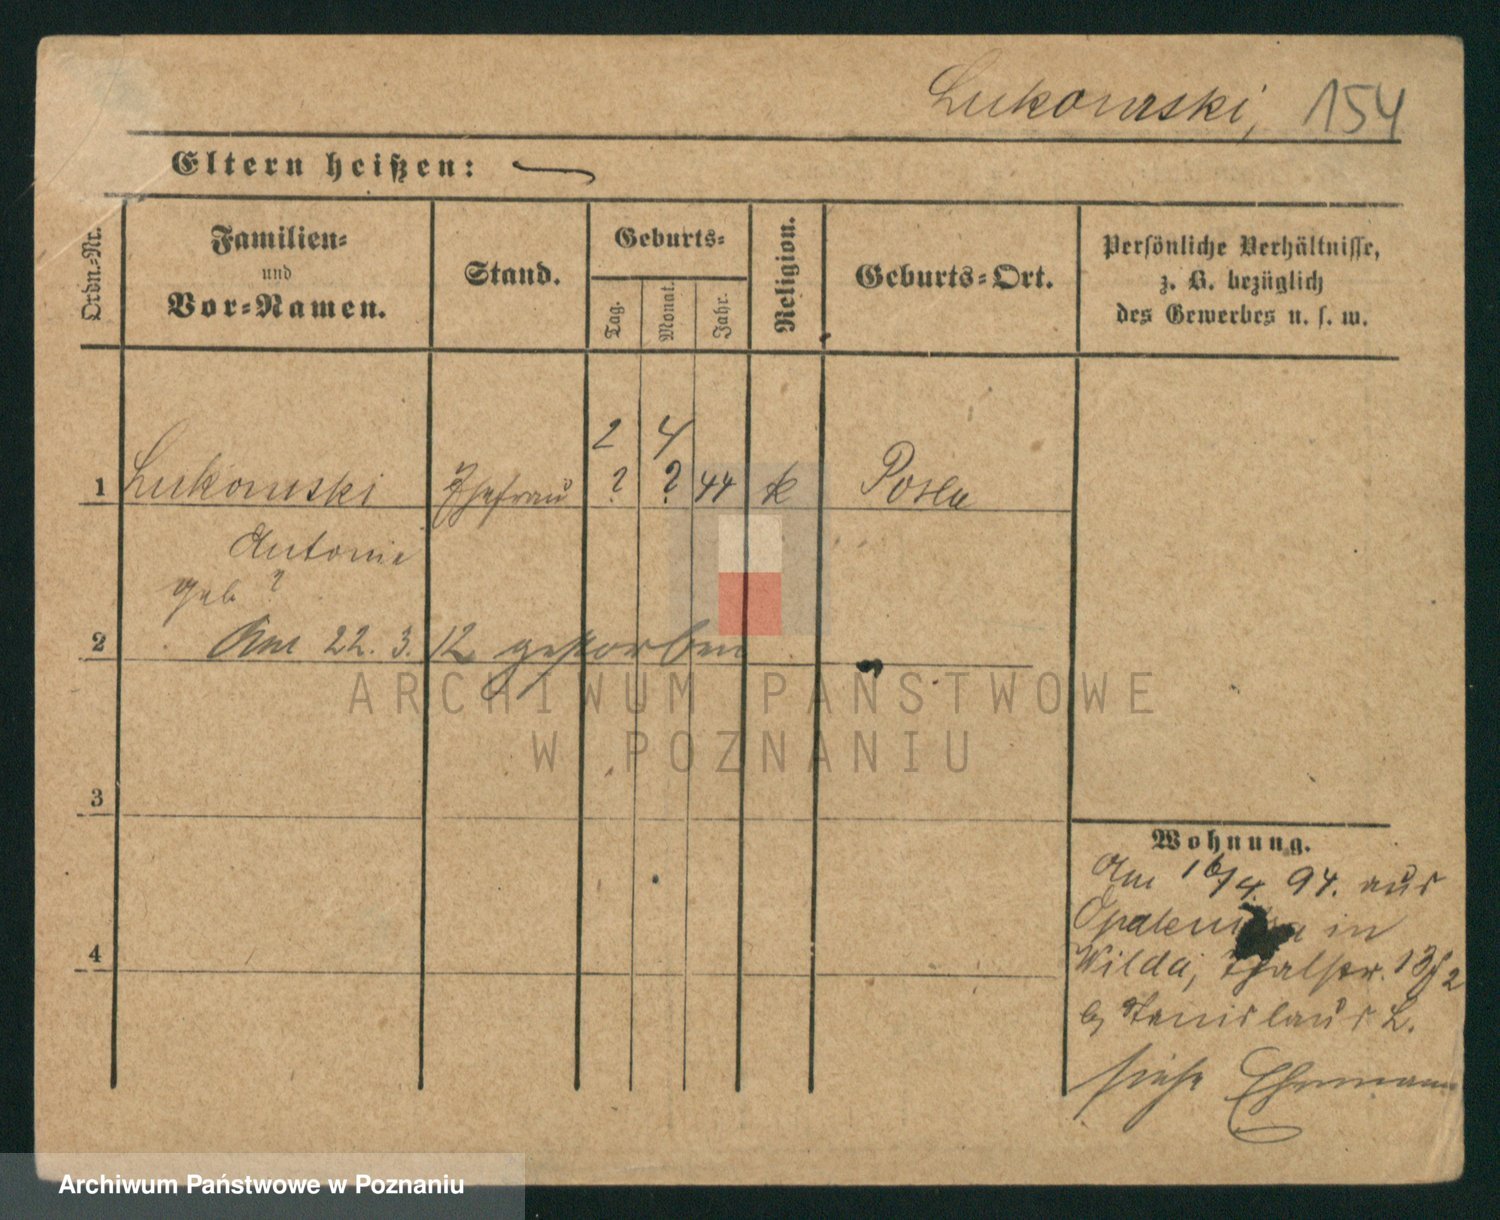 Lukowski, 154
Eltern heißen:
Ordn.-Nr.
Familien-
und
Vor-Namen.
Stand.
Geburts-
Tag.
Monat.
Jahr.
Religion.
Geburts-Ort.
Persönliche Verhältnisse,
z. B. bezüglich
des Gewerbes u. s. w.
2 4
1 Lukowski Ehefrau ? ? 44 k
Antonie
geb ?
2 Am 22. 3. 12 gestorben
ARCHIWUM PAŃSTWOWE
W POZNANIU
3
4
Wohnung.
Am 16/4. 94. aus
in
Wilda, Thalstr.
b, Stanislaus L.
siehe Ehemann
Archiwum Państwowe w Poznaniu